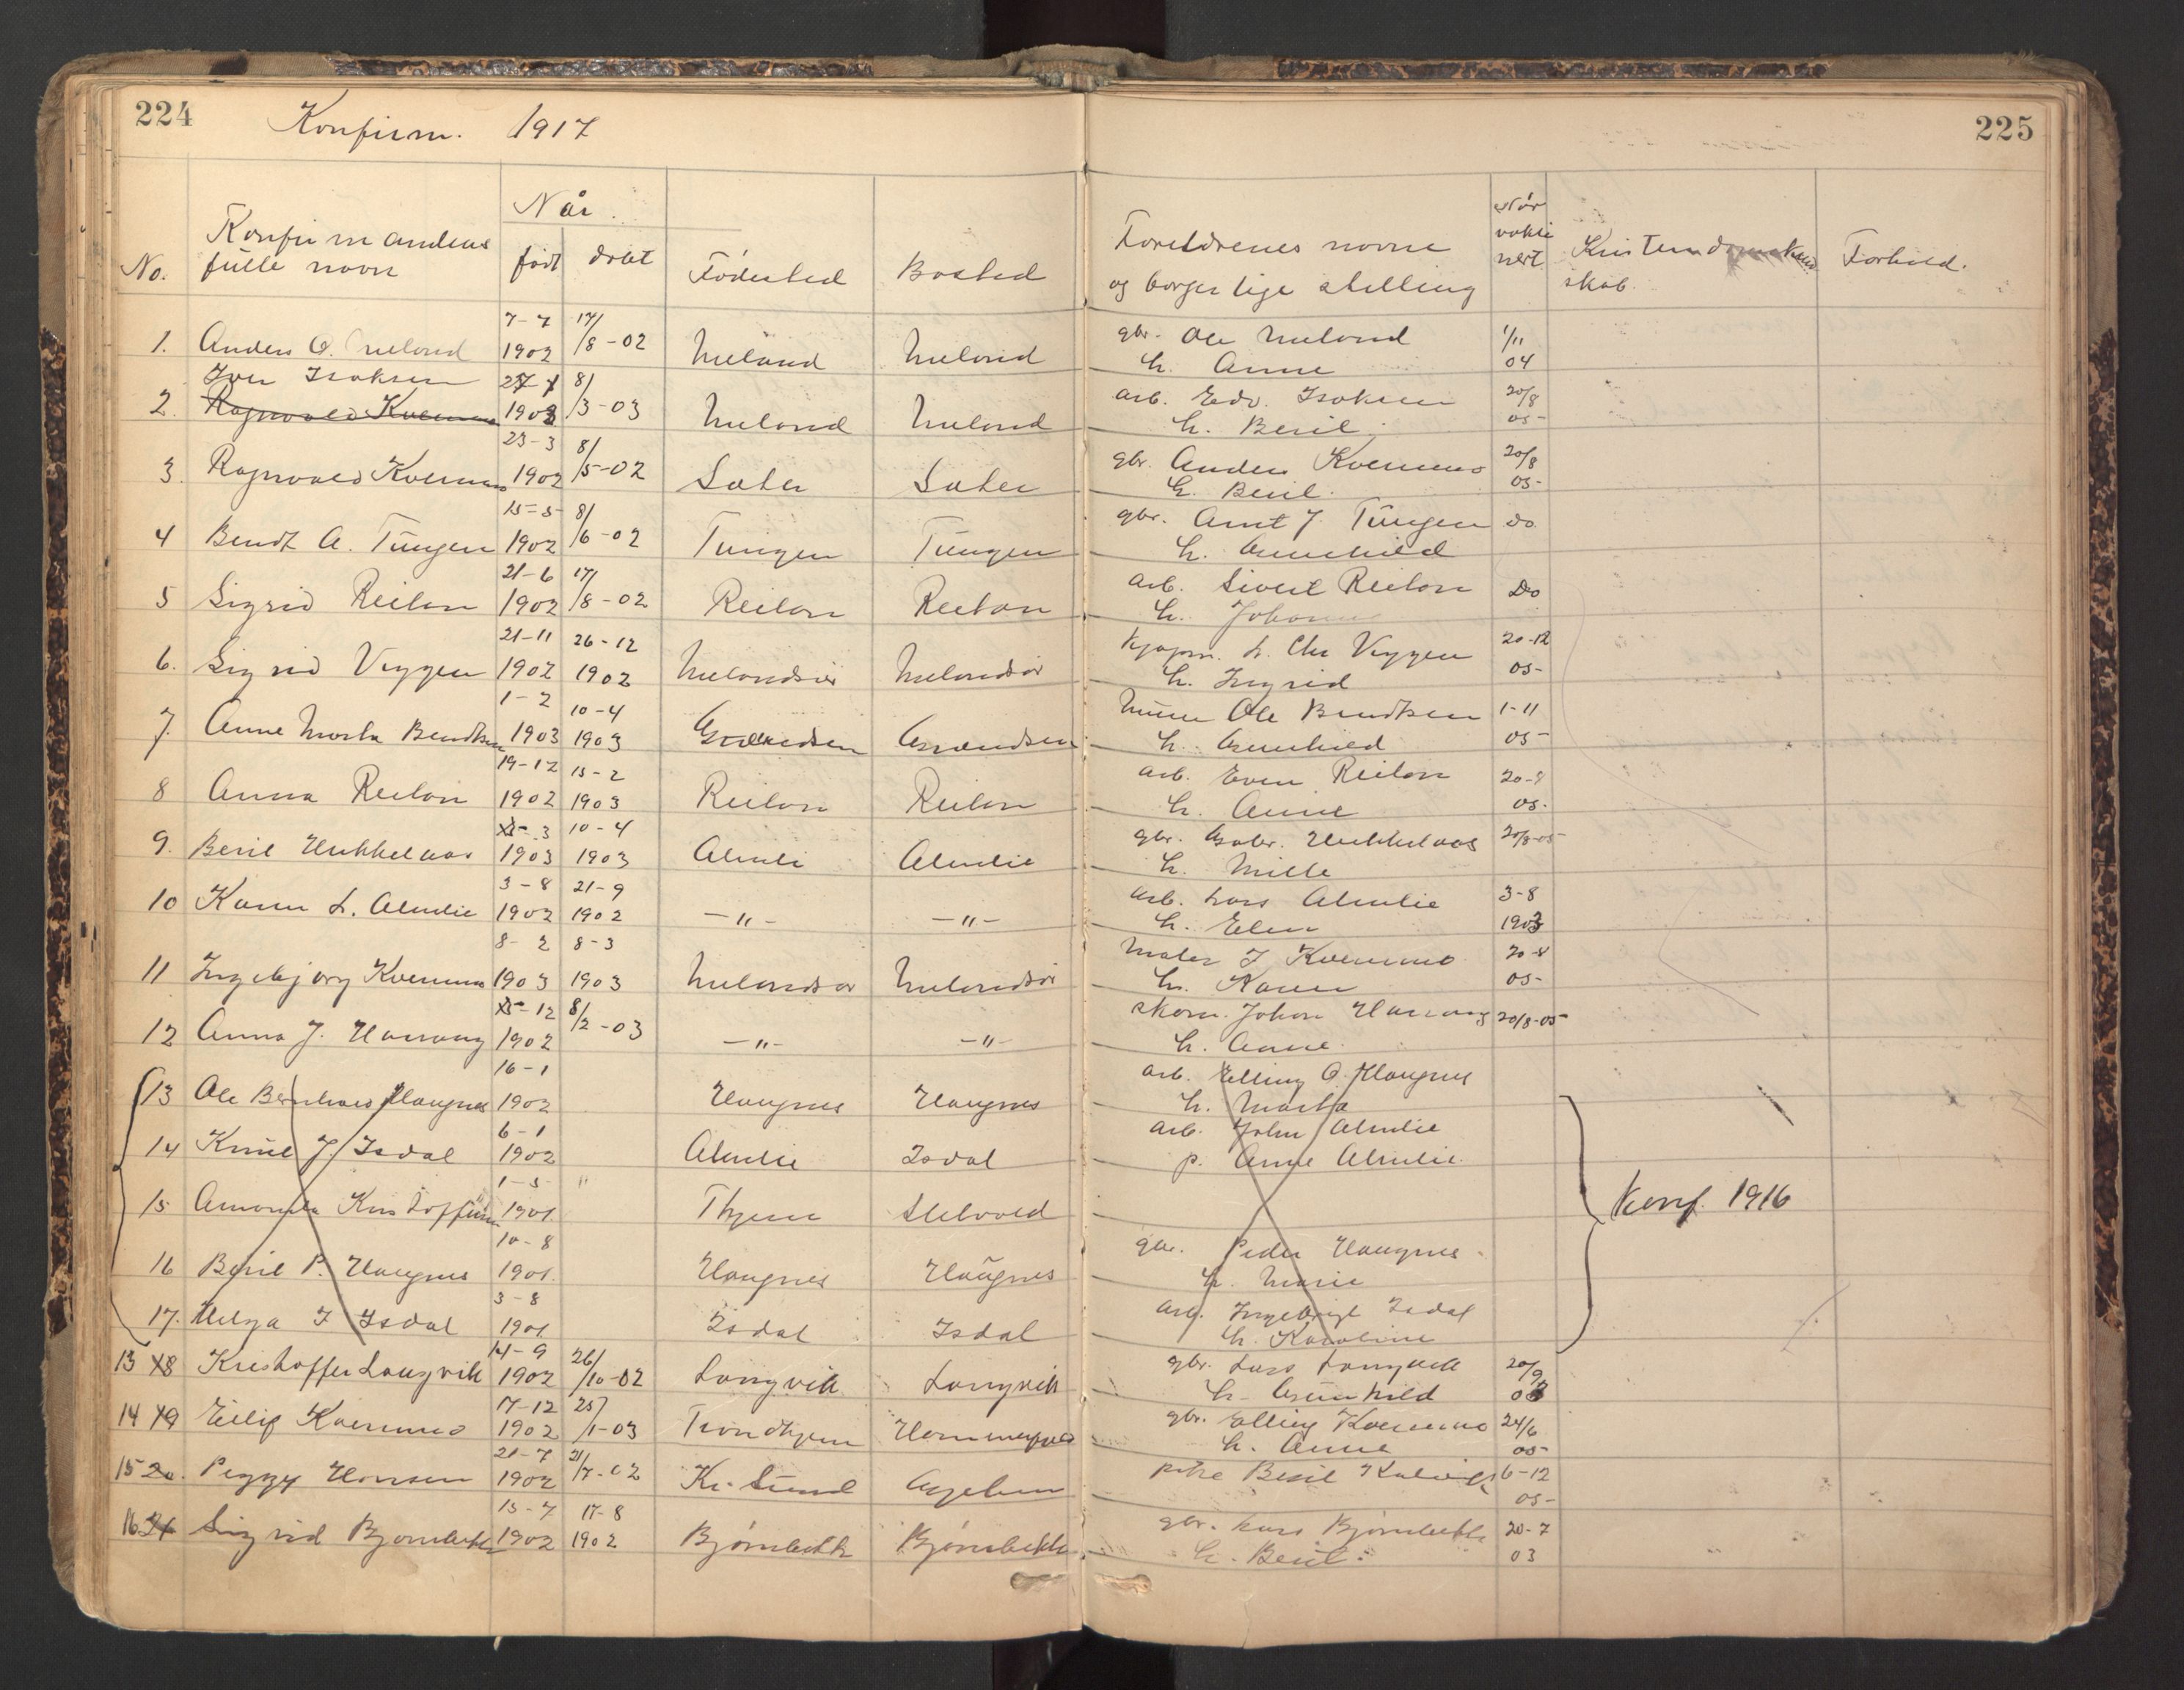 224
Konfirm. 1917
225
No.
Konfirmandens fulle navn
Når
født
døbt
Fødested
Bosted
Foreldrenes navne og borgerlige stilling
Når vaksinert
Kristendomskundskab.
Forhold.
1. Anders O. Meland 7-7 1902 17/8-02 Meland Meland gbr. Ole Meland h. Anne 1/11 04
2. Iver Isaksen Ragnvald Kvernmo 1903 8/3-03 Meland Meland arb. Edv. Isaksen h. Beril 20/8 05-
3. Ragnvald Kvernmo 23-3 1902 8/5-02 Sæter Sæter gbr. Anders Kvernmo h. Beril. 20/8 05-
4 Bendt A. Tungen 15-5 1902 8/6-02 Tungen Tungen gbr. Arnt J. Tungen h. Gunhild do.
5 Sigrid Reitan 21-6 1902 17/8-02 Reitan Reitan arb. Sivert Reitan h. Johanna Do
6. Sigrid Viggen 21-11 1902 26-12 1902 Melandsør Melandsør kjøpm. L. Chr Viggen h. Ingrid 20-12 05-
7. Anne Marta Bendtsen 1-2 1903 10-4 1903 Ole Bendtsen h. Gunhild 1-11 05-
8 Anna Reitan 19-12 1902 15-2 1903 Reitan Reitan arb. Even Reitan h. Anne 20-8 05.
9. Beril Hukkelaas 3 1903 10-4 1903 Almli Almlie gbr. Gabr. Hukkelaas h. Mille 20/8-05-
10 Karen L. Almlie 3-8 1902 21-9 1902 -"- -"- arb. Lars Almlie h. Elen 3-8 1903
11 Ingebjørg Kvernmo 8-2 1903 8-3 1903 Melandsør Melandsør Maler J Kvernmo h. Karen 20-8 05-
12 Anna J. Harvang 12 1902 8/2-03 -"- -"- skom. Johan Harvang h. Anne. 20/8-05-
13 Ole Bernhard Haugnes 16-1 1902 Haugnes Haugnes arb. Elling O. Haugnes h. Marta
14 Knut J. Isdal 6-1 1902 Almlie Isdal arb. John Almlie p. Anne Almlie.
15 Amanda Kristoffersen 1-5- 1901. "
16 Beril P. Haugnes 10-8 1901. Haugnes Haugnes gbr. Peder Haugnes. h. Marie
Konf. 1916
17. Helga I Isdal 3-8 1901 Isdal Isdal arb. Ingebrigt Isdal h. Karoline
13 18 Kristoffer Langvik 14-9 1902 26/10-02 Langvik Langvik gbr. Lars Langvik h. Gunhild 20/9
14 19 Eilif Kvernmo 17-12 1902 25/1-03 Trondhjem gbr. Elling Kvernmo h. Anne 24/6 05-
15 20. Peggy Hansen 21-7 1902 Kr. Sund pike Beril 6-12 05-
16 21 Sigrid Bjørnbekk 15-7 1902 17-8 1902 Bjørnbekk Bjørnbekk gbr. Lars Bjørnbekk h. Beril. 20-7 03